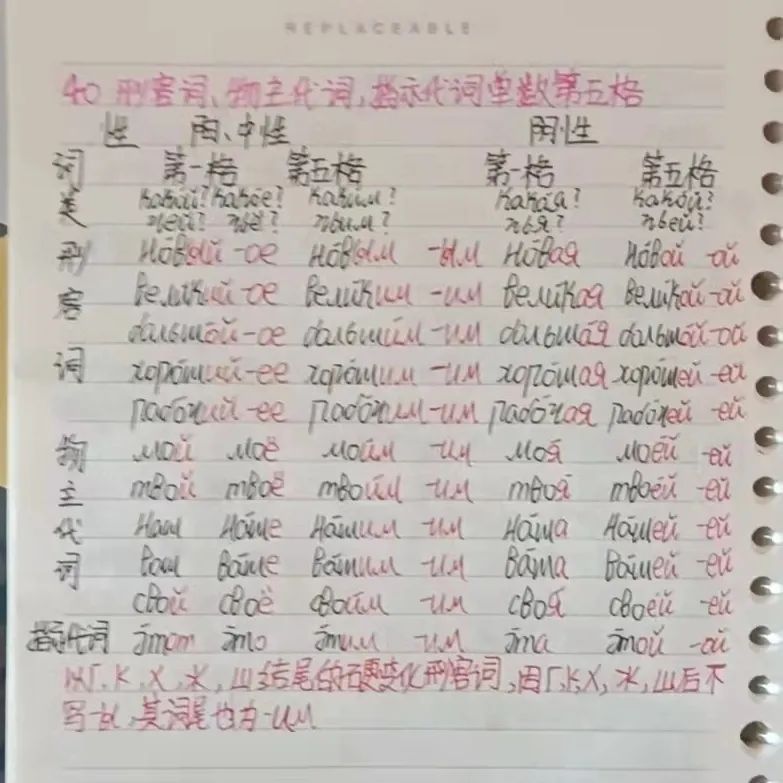 REPLACEABLE
40 形容词、物主代词,指示代词单数第五格
性 阳、中性 阴性
词 第一格 第五格 第一格 第五格
类 какой? какóе? каким? какáя? какóй?
чей? чьё? чьим? чья? чьей?
形 нóвый -ое нóвым -ым нóвая нóвой -ой
容 вели́кий -ое вели́ким -им вели́кая вели́кой -ой
большóй -ое больши́м -им большáя большóй -ой
词 хорóший -ее хорóшим -им хорóшая хорóшей -ей
рабóчий -ее рабóчим -им рабóчая рабóчей -ей
物 мой моё мои́м -им моя́ моéй -ей
主 твой твоё твои́м -им твоя́ твоéй -ей
代 наш нáше нáшим -им нáша нáшей -ей
词 ваш вáше вáшим -им вáша вáшей -ей
свой своё свои́м -им своя́ своéй -ей
指示代词 э́тот э́то э́тим -им э́та э́той -ой
以г, к, х, ж, ш结尾的硬变化形容词,因г,к,х, ж, ш后不
写-ы, 其词尾也为-им